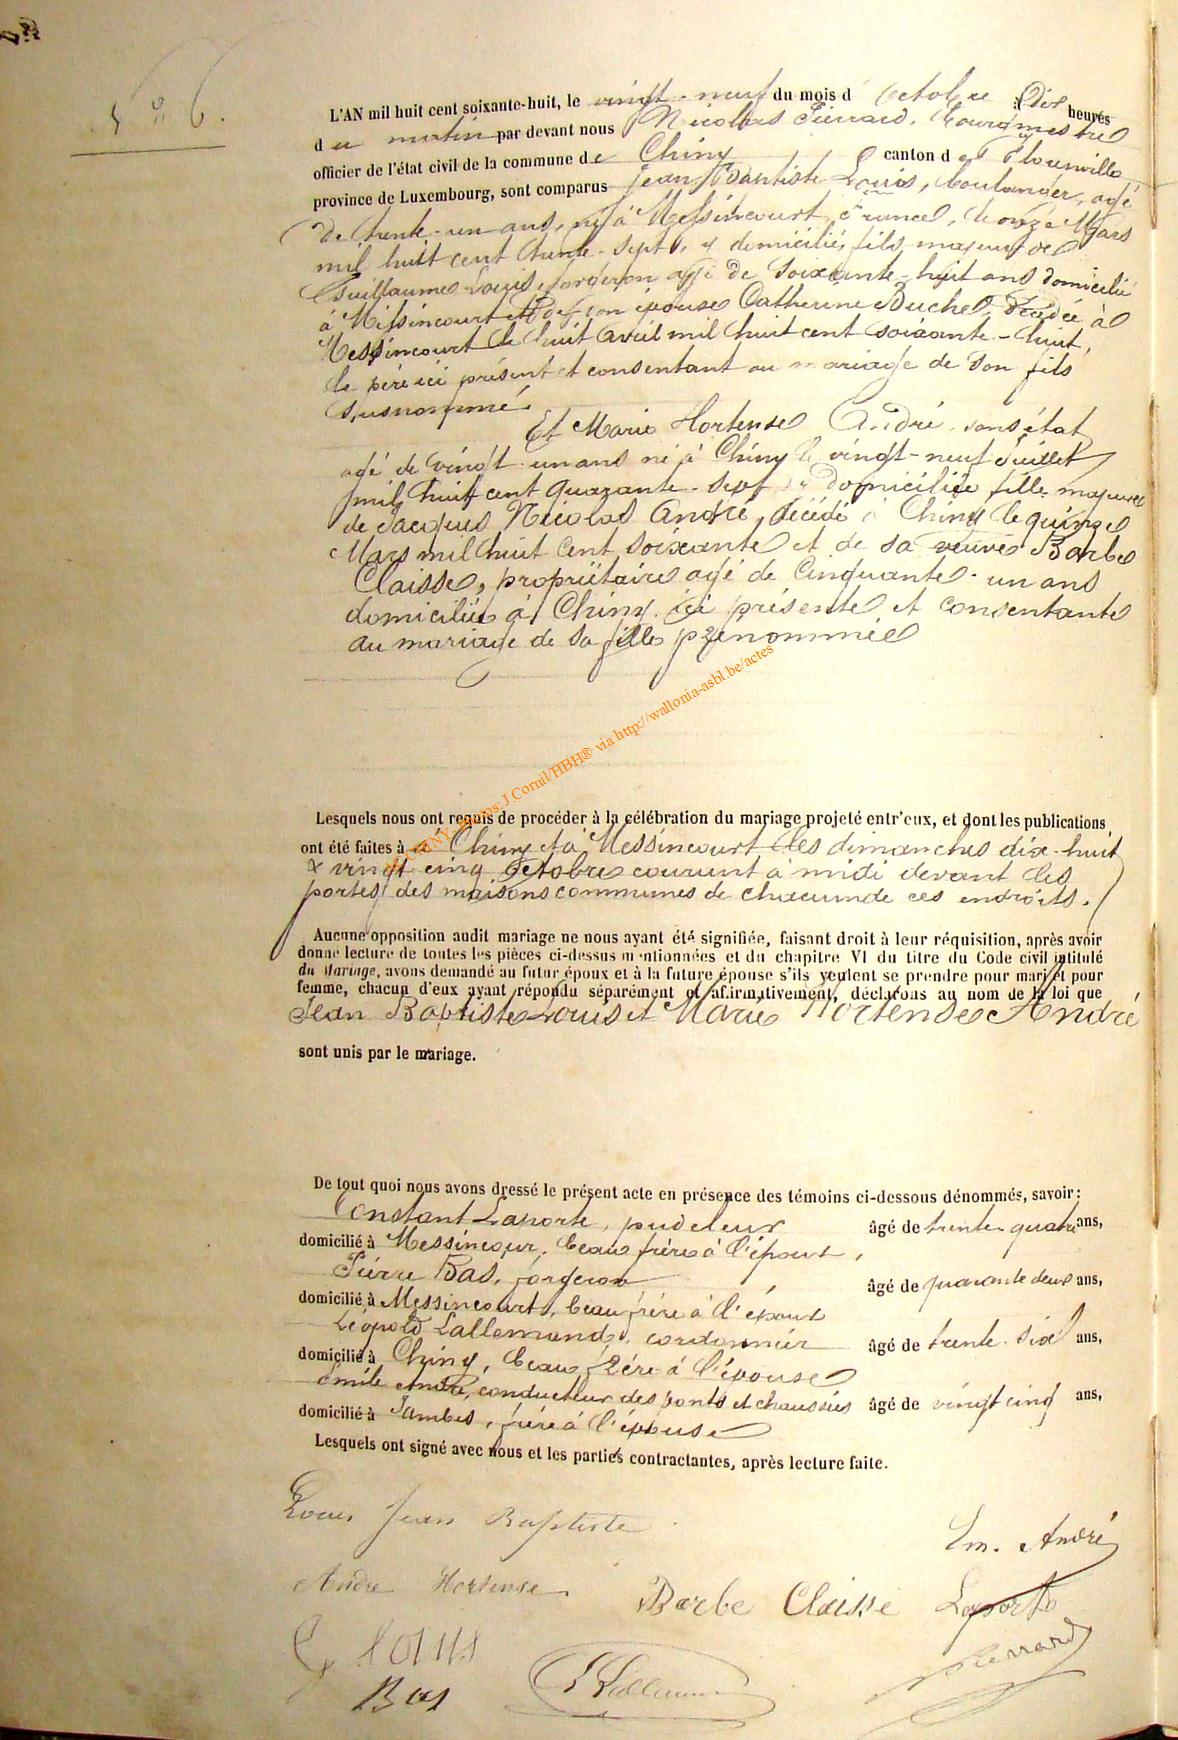 N° 6.
L'AN mil huit cent soixante-huit, le vingt-neuf du mois d'octobre à Dix heures
du matin par devant nous Nicolas Pierrard, bourgmestre
officier de l'état civil de la commune de Chiny canton de Florenville
province de Luxembourg, sont comparus Jean Baptiste Louis, boulanger, agé
de trente-un ans, né à Messincourt, France, le onze Mars
mil huit cent trente-sept, y domicilié, fils majeur de
Guillaume Louis, forgeron agé de soixante-huit ans domicilié
à Messincourt et de son épouse Catherine Buchel, décédée à
Messincourt le huit avril mil huit cent soixante-huit,
le père ici présent et consentant au mariage de son fils
susnommé.
Et Marie Hortense André sans état
agé de vingt-un ans né à Chiny le vingt-neuf Juillet
mil huit cent quarante-sept y domiciliée fille majeure
de Jacques Nicolas André, décédé à Chiny le quinze
Mars mil huit cent soixante et de sa veuve Barbe
Claisse, propriétaire agé de cinquante-un ans
domiciliée à Chiny ici présente et consentante
au mariage de sa fille prénommée
CHINY Photos: J.Cornil/HBH® via http://wallonia-asbl.be/actes
Lesquels nous ont requis de procéder à la célébration du mariage projeté entr'eux, et dont les publications
ont été faites à Chiny et à Messincourt les dimanches dix-huit
& vingt cinq octobre courant à midi devant les
portes des maisons communes de chacun de ces endroits.
Aucune opposition audit mariage ne nous ayant été signifiée, faisant droit à leur réquisition, après avoir
donné lecture de toutes les pièces ci-dessus mentionnées et du chapitre VI du titre du Code civil intitulé
du Mariage, avons demandé au futur époux et à la future épouse s'ils veulent se prendre pour mari et pour
femme, chacun d'eux ayant répondu séparément et affirmativement, déclarons au nom de la loi que
Jean Baptiste Louis et Marie Hortense André
sont unis par le mariage.
De tout quoi nous avons dressé le présent acte en présence des témoins ci-dessous dénommés, savoir:
Constant Laporte, pudeleur âgé de trente-quatre ans,
domicilié à Messincour, beau frère à l'époux,
Pierre Bas, forgeron âgé de quarante deux ans,
domicilié à Messincourt, beau frère à l'époux
Léopold Lallemand, cordonnier âgé de trente-six ans,
domicilié à Chiny, beau frère à l'épouse
Emile André, conducteur des ponts et chaussées âgé de vingt cinq ans,
domicilié à Jambes, frère à l'épouse
Lesquels ont signé avec nous et les parties contractantes, après lecture faite.
Louis Jean Baptiste
Em. André
Andre Hortense
Barbe Claisse Laporte
G louis
Pierrard
Bas
L Lallemand